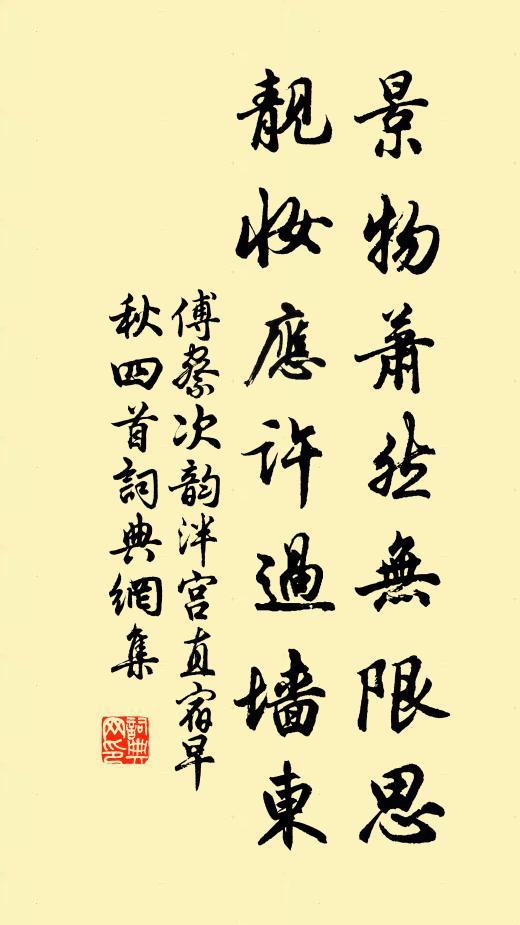 景物蕭然無限思
靚妝應許過墻東
傅察次韵泮宫直宿早
秋四首詞典網集
詞典网印